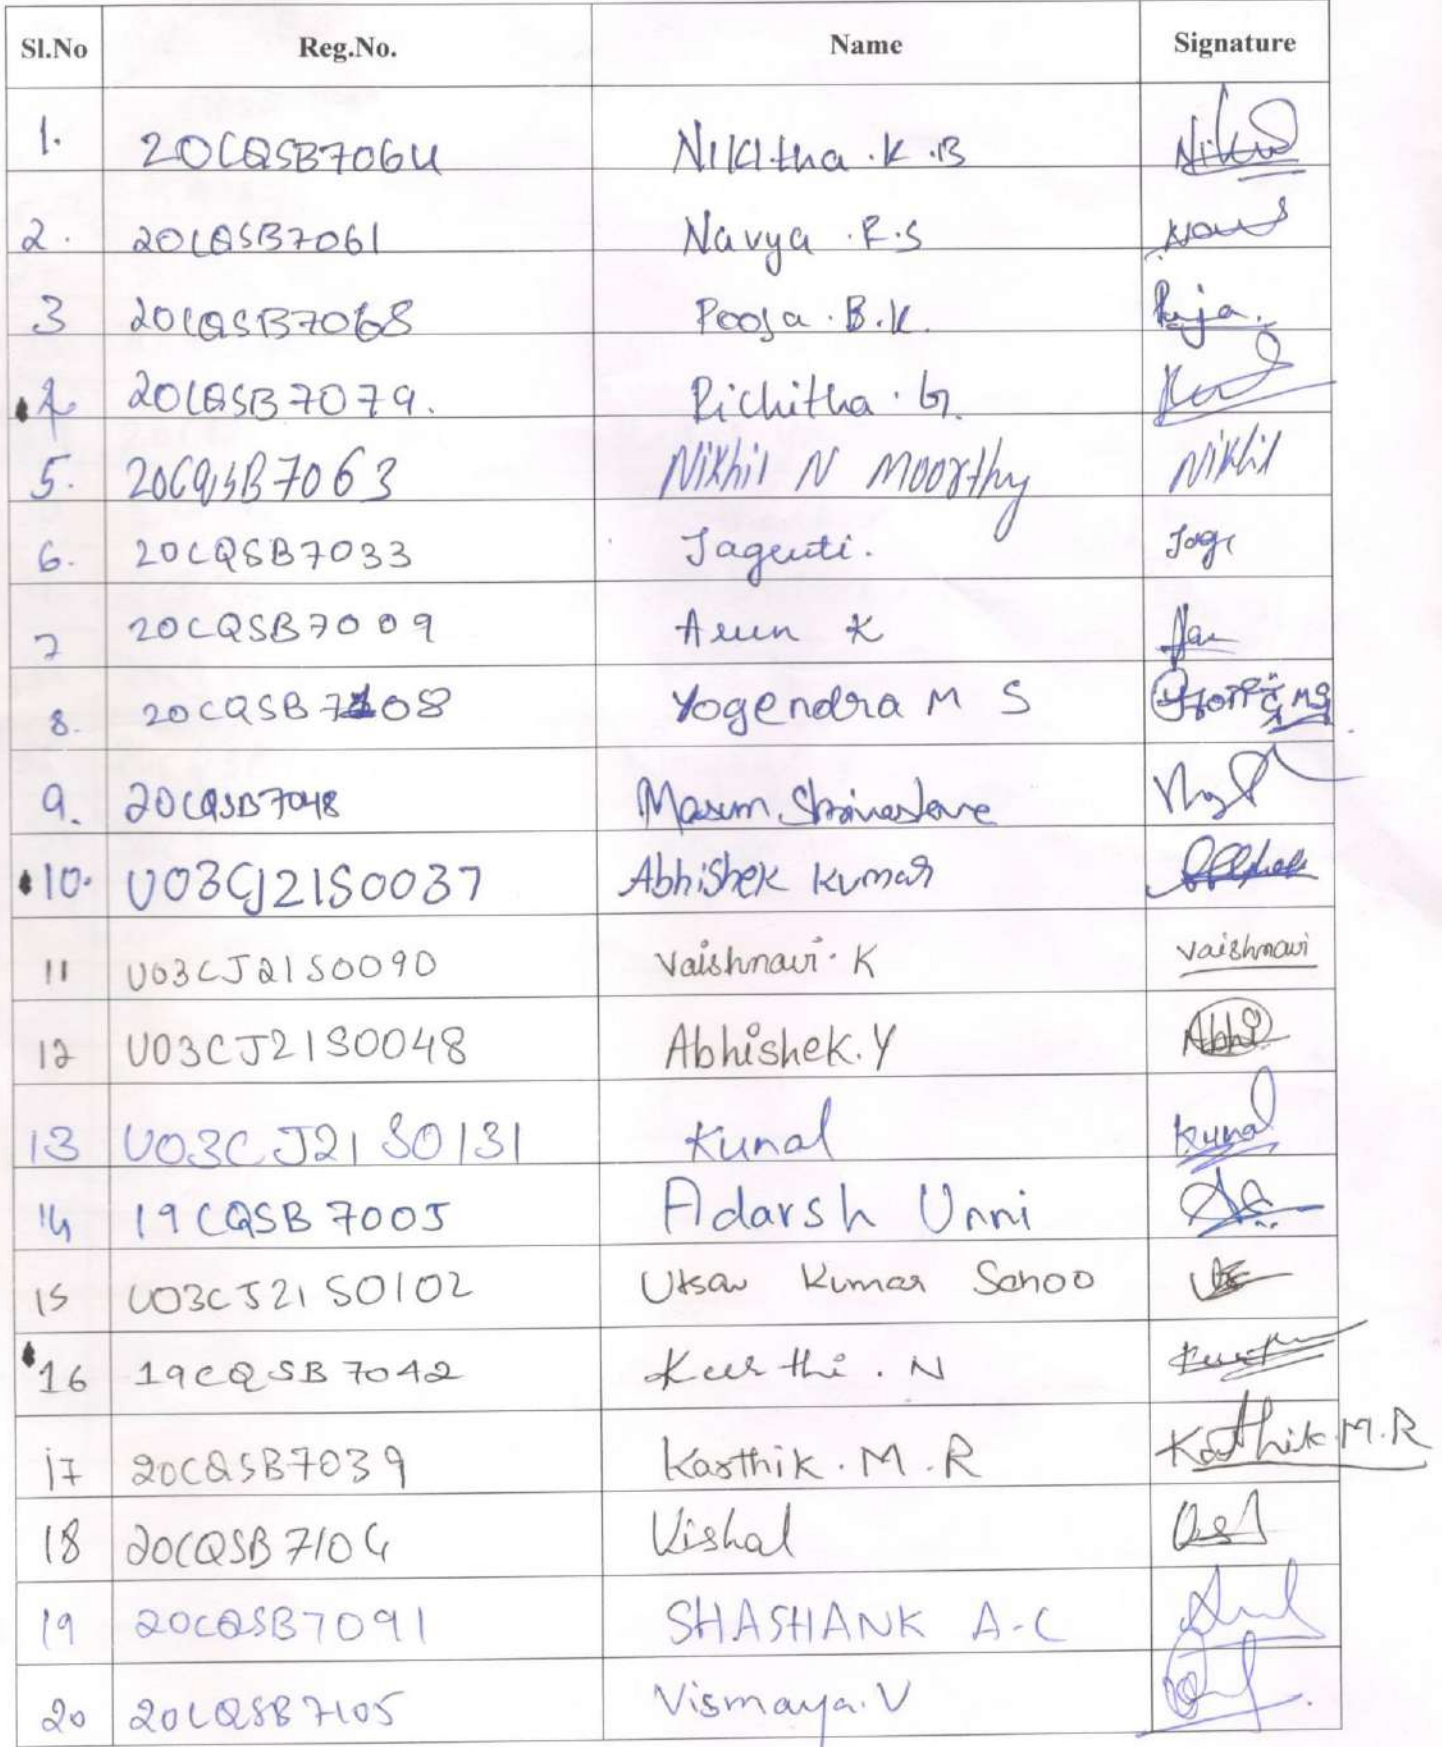 Sl.No Reg.No. Name Signature
1. 20CQSB7064 Nikitha .K .B
2. 20CQSB7061 Navya .R.S
3 20CQSB7068 Pooja . B.K. Puja.
4 20CQSB7079. Richitha . G.
5. 20CQSB7063 Nikhil N Moorthy Nikhil
6. 20CQSB7033 Jagruti. Jag
7 20CQSB7009 Arun K
8. 20CQSB7108 Yogendra M S
9. 20CQSB7048 Masum Shrivastava
10. U03CJ21S0037 Abhishek Kumar
11 U03CJ21S0090 Vaishnavi . K Vaishnavi
12 U03CJ21S0048 Abhishek.Y Abhi
13 U03CJ21S0131 Kunal Kunal
14 19CQSB7005 Adarsh Unni
15 U03CJ21S0102 Utsav Kumar Sahoo
16 19CQSB7042 Keerthi . N
17 20CQSB7039 Karthik . M . R Karthik.M.R
18 20CQSB7104 Vishal
19 20CQSB7091 SHASHANK A.C
20 20CQSB7105 Vismaya.V